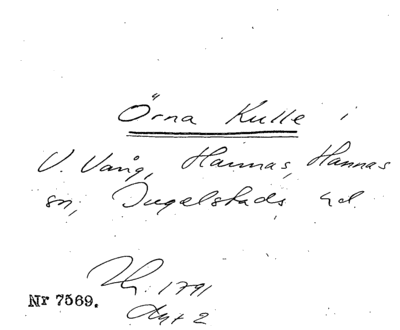 Örna Kulle i
V. Vång, Hannas, Hannas
sn, Ingelstads hd.
1791
Nr 7569.
2